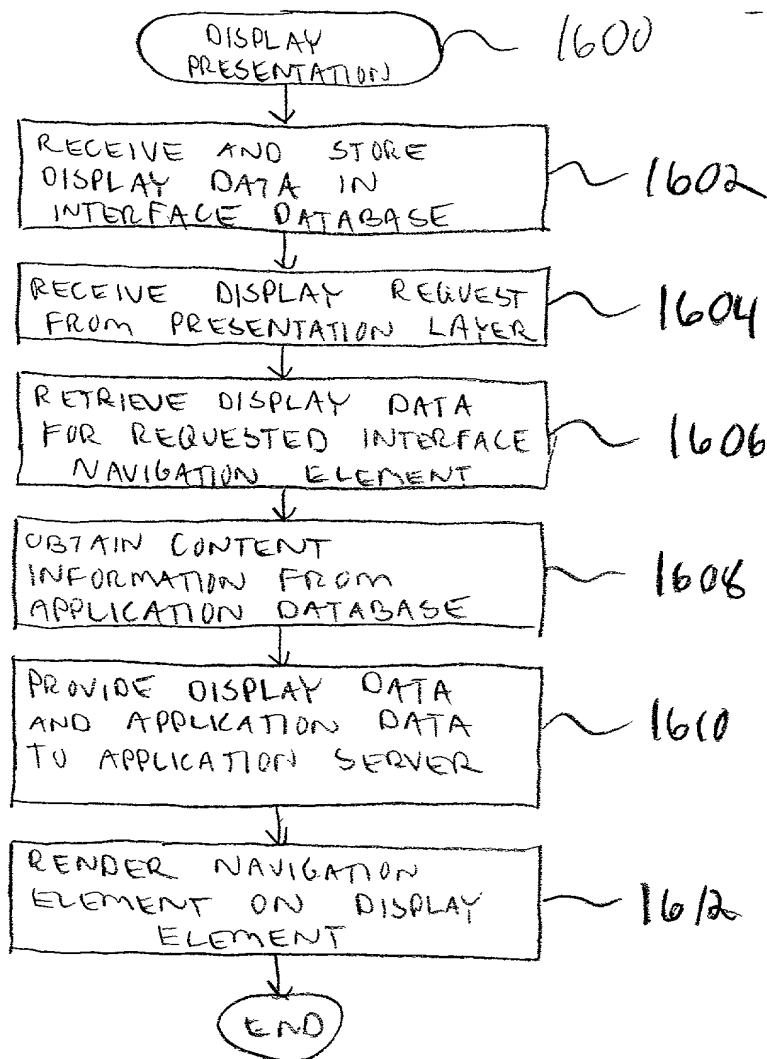 DISPLAY
PRESENTATION
1600
RECEIVE AND STORE
DISPLAY DATA IN
INTERFACE DATABASE
1602
RECEIVE DISPLAY REQUEST
FROM PRESENTATION LAYER
1604
RETRIEVE DISPLAY DATA
FOR REQUESTED INTERFACE
NAVIGATION ELEMENT
1606
OBTAIN CONTENT
INFORMATION FROM
APPLICATION DATABASE
1608
PROVIDE DISPLAY DATA
AND APPLICATION DATA
TO APPLICATION SERVER
1610
RENDER NAVIGATION
ELEMENT ON DISPLAY
ELEMENT
1612
END